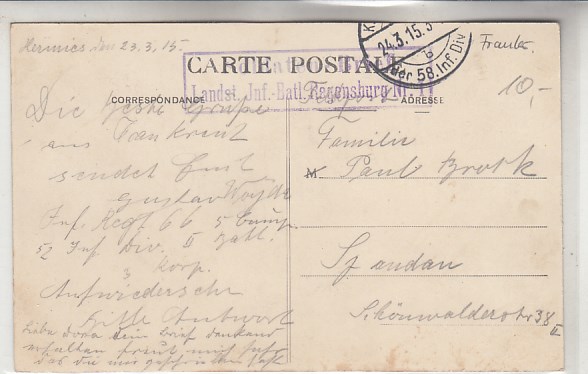 Hermies den 23.3.15.
CARTE POSTALE
CORRESPONDANCE
ADRESSE
Landst. Inf.-Batl. Regensburg
24.3.15.
der 58. Inf. Div.
10,-
Die beste Grüße
aus Frankreich
sendet Emil
Gustav
Inf. Regt 66 5 Comp.
52 Inf. Div. II Batl.
Korp.
Aufwiedersehn
Bitte Antwort
Liebe Dora dein Brief dankend
erhalten freut mich sehr
das die mir geschrieben hast
Familie
Paul
Spandau
Schönwalderstr 38
II